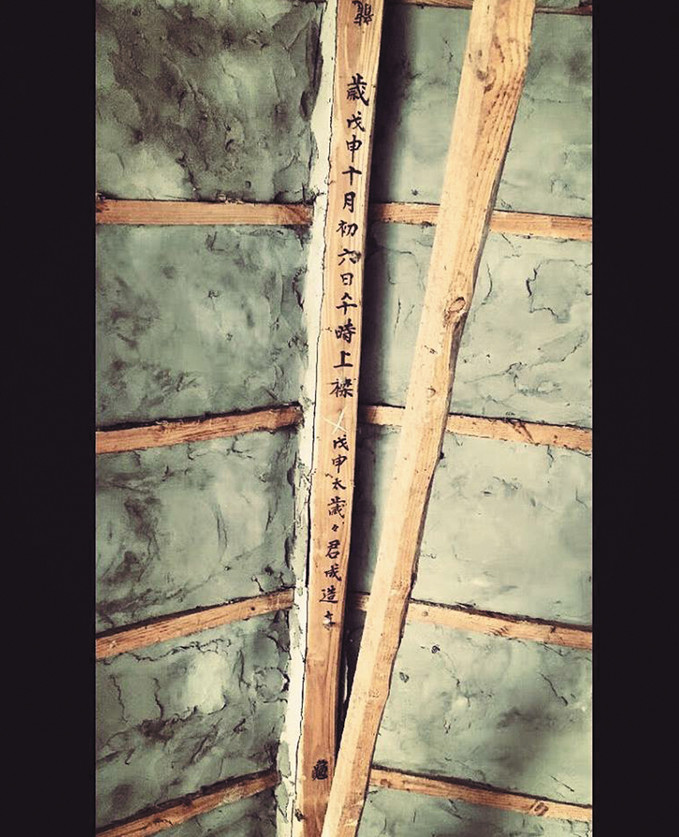 歲戊申十月初六日午時上樑
戊申太歲々君成造